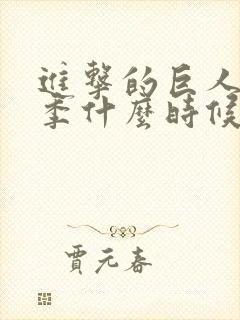 進撃的巨人
季什麼時候
賈元春